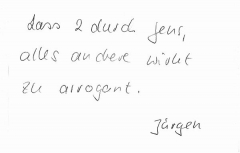 dass 2 durch jens,
alles andere wirkt
zu arrogant.
Jürgen